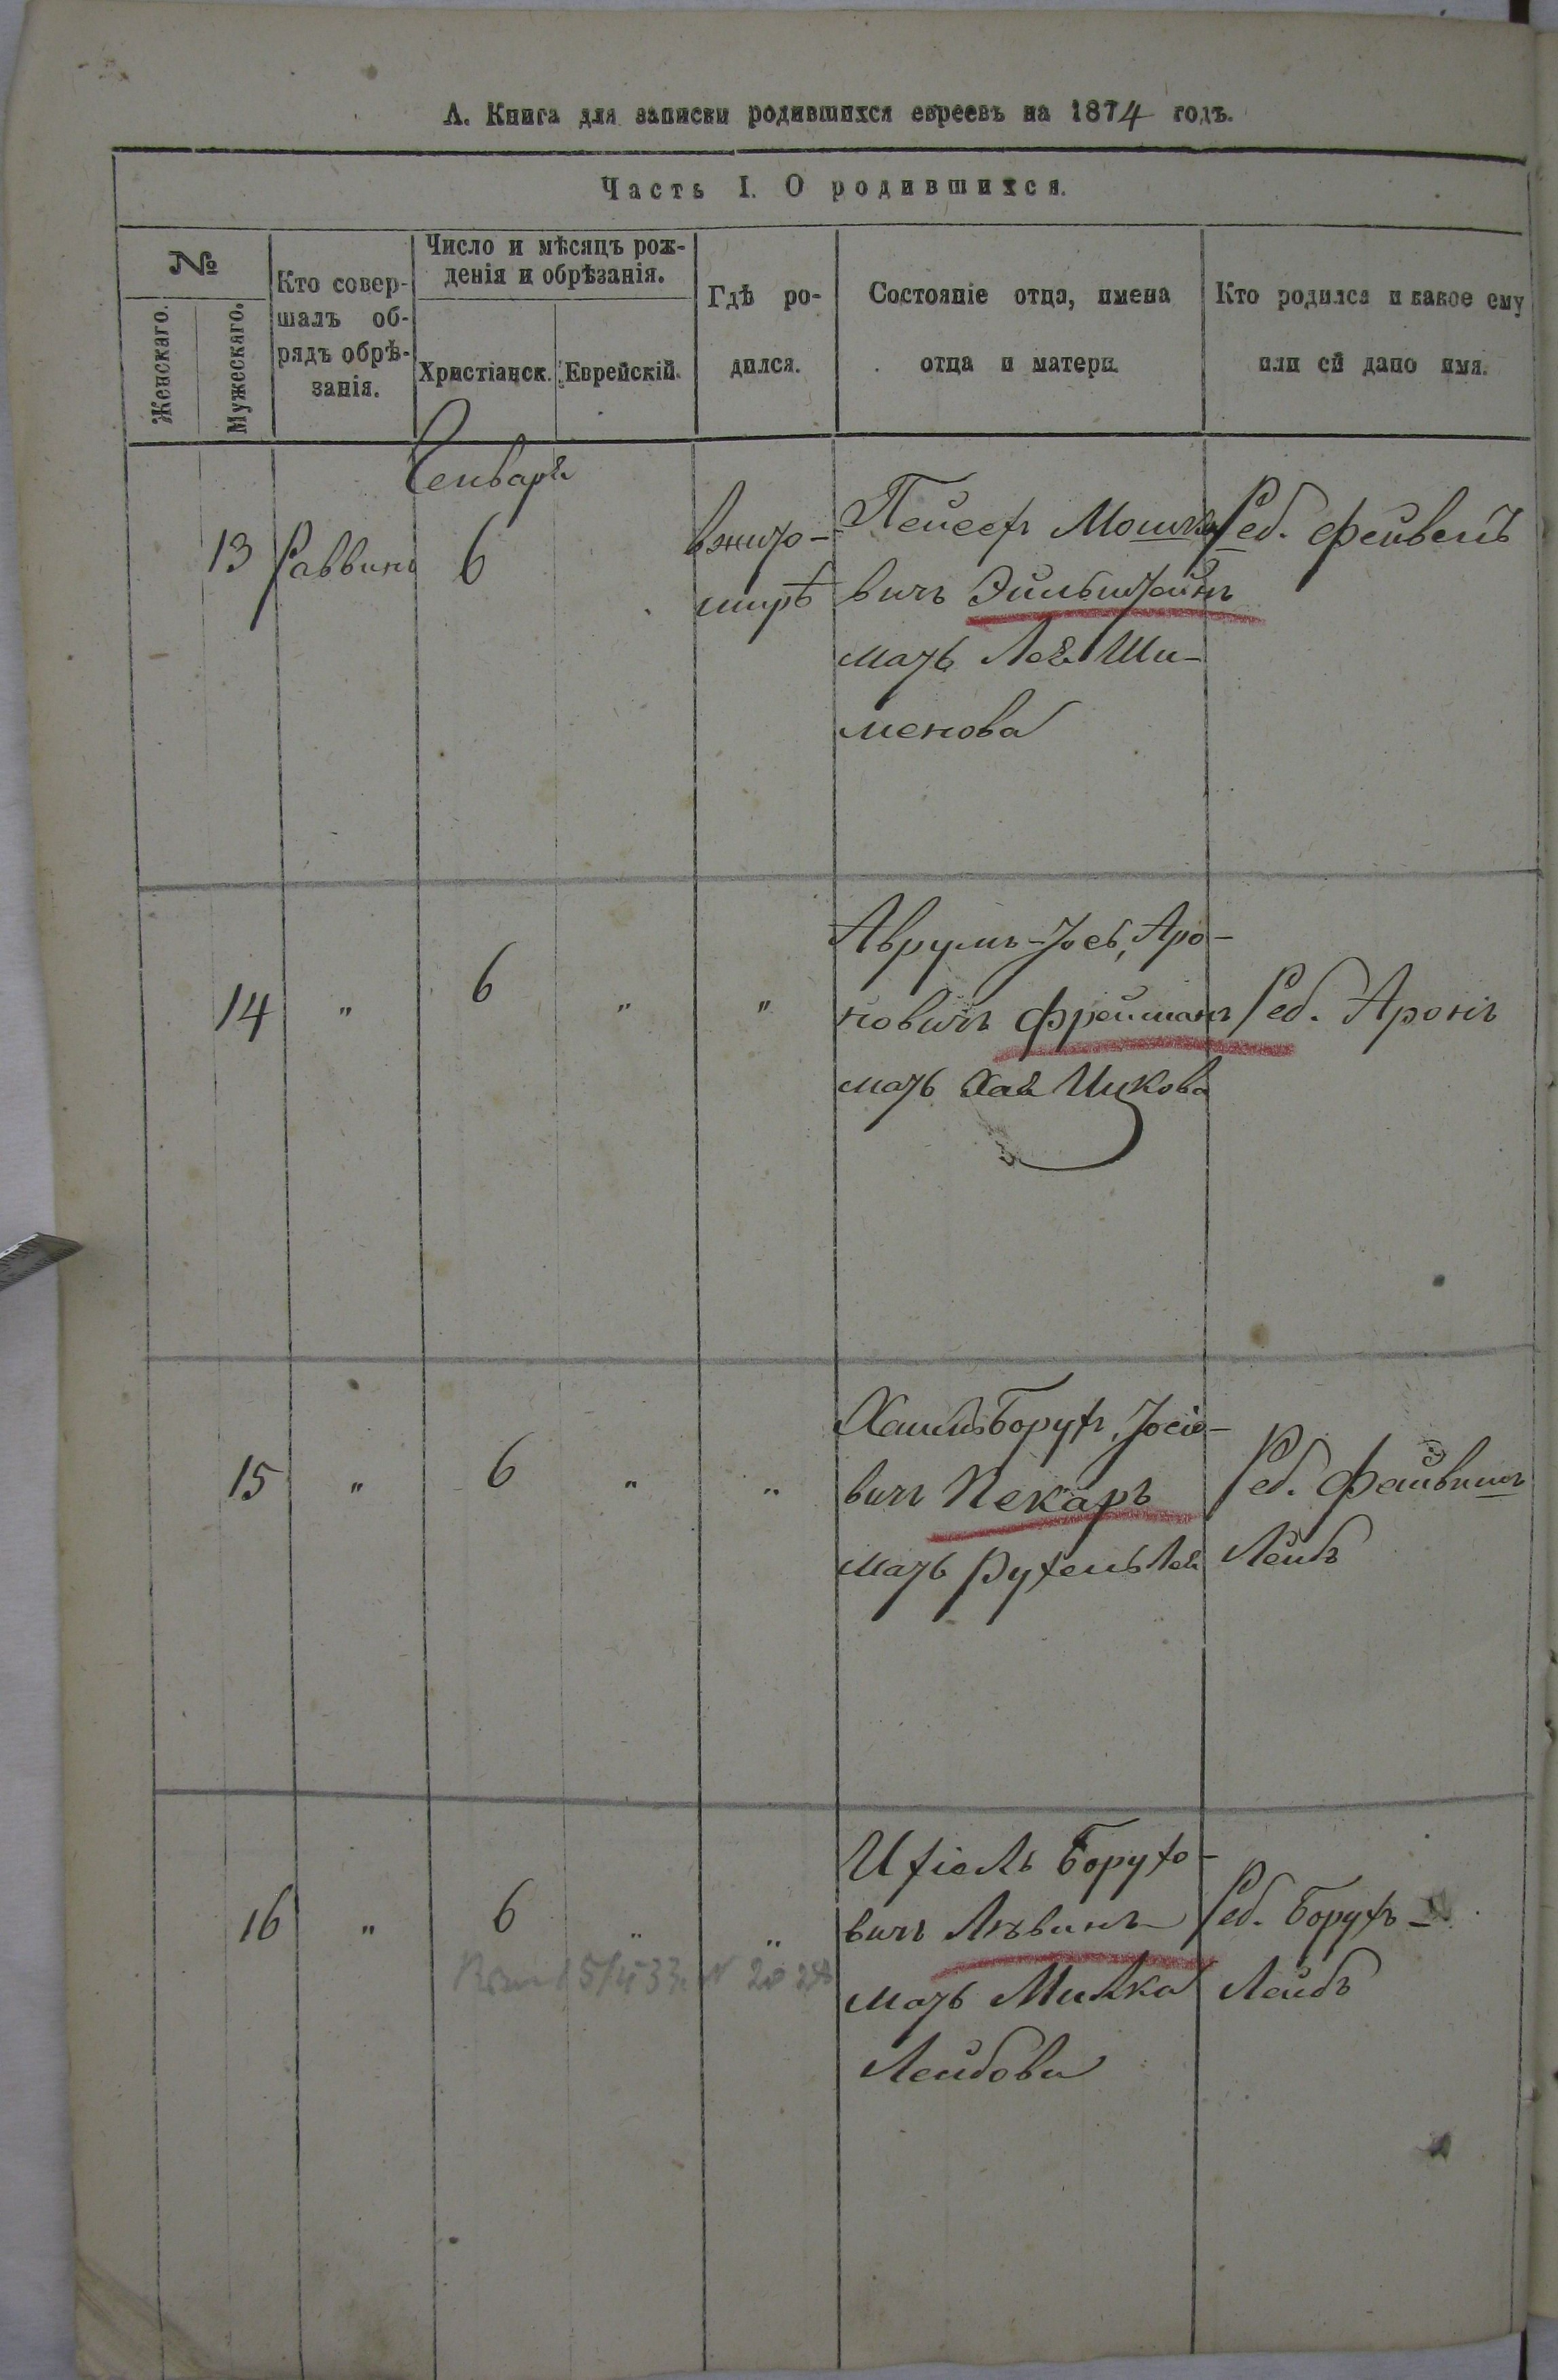 А. Книга для записки родившихся евреевъ на 1874 годъ.
Часть I. О родившихся.
№
Женскаго.
Мужескаго.
Кто совер-
шалъ об-
рядъ обрѣ-
занія.
Число и мѣсяцъ рож-
денія и обрѣзанія.
Христіанск.
Еврейскій.
Гдѣ ро-
дился.
Состояніе отца, имена
отца и матери.
Кто родился и какое ему
или ей дано имя.
Генваря
13 Раввинъ 6
вжито-
мирѣ
Пейсехъ Мошко
вичъ Эйльштейнъ
мать Лея Ши-
менова
Реб. Фейвель
14 " 6 " "
Аврумъ-Іось, Аро-
новичъ Фрейманъ
мать Хая Ицкова
Реб. Аронъ
15 " 6 " "
Хаимъ Борухъ, Іосіо-
вичъ Пекаръ
мать Рухель Лея
Реб. Фейвишъ
Лейбъ
16 " 6 " "
Ихіель Борухо-
вичъ Лѣвинъ
мать Милка
Лейбова
Реб. Борухъ-
Лейбъ